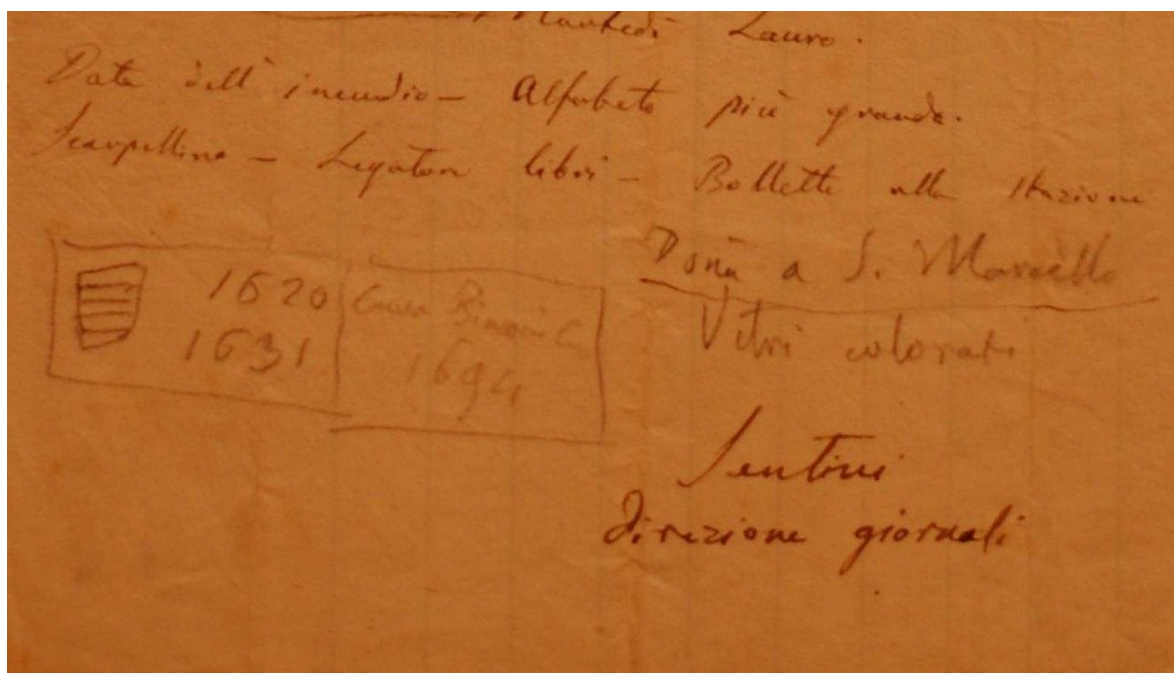 Manfredi Lauro.
Data dell'incendio - Alfabeto più grande.
Scarpellino - Legatore libri - Bollette alla Stazione
1620
1631
1694
Donà a S. Marcello
Vetri colorati
Sentini
direzione giornali